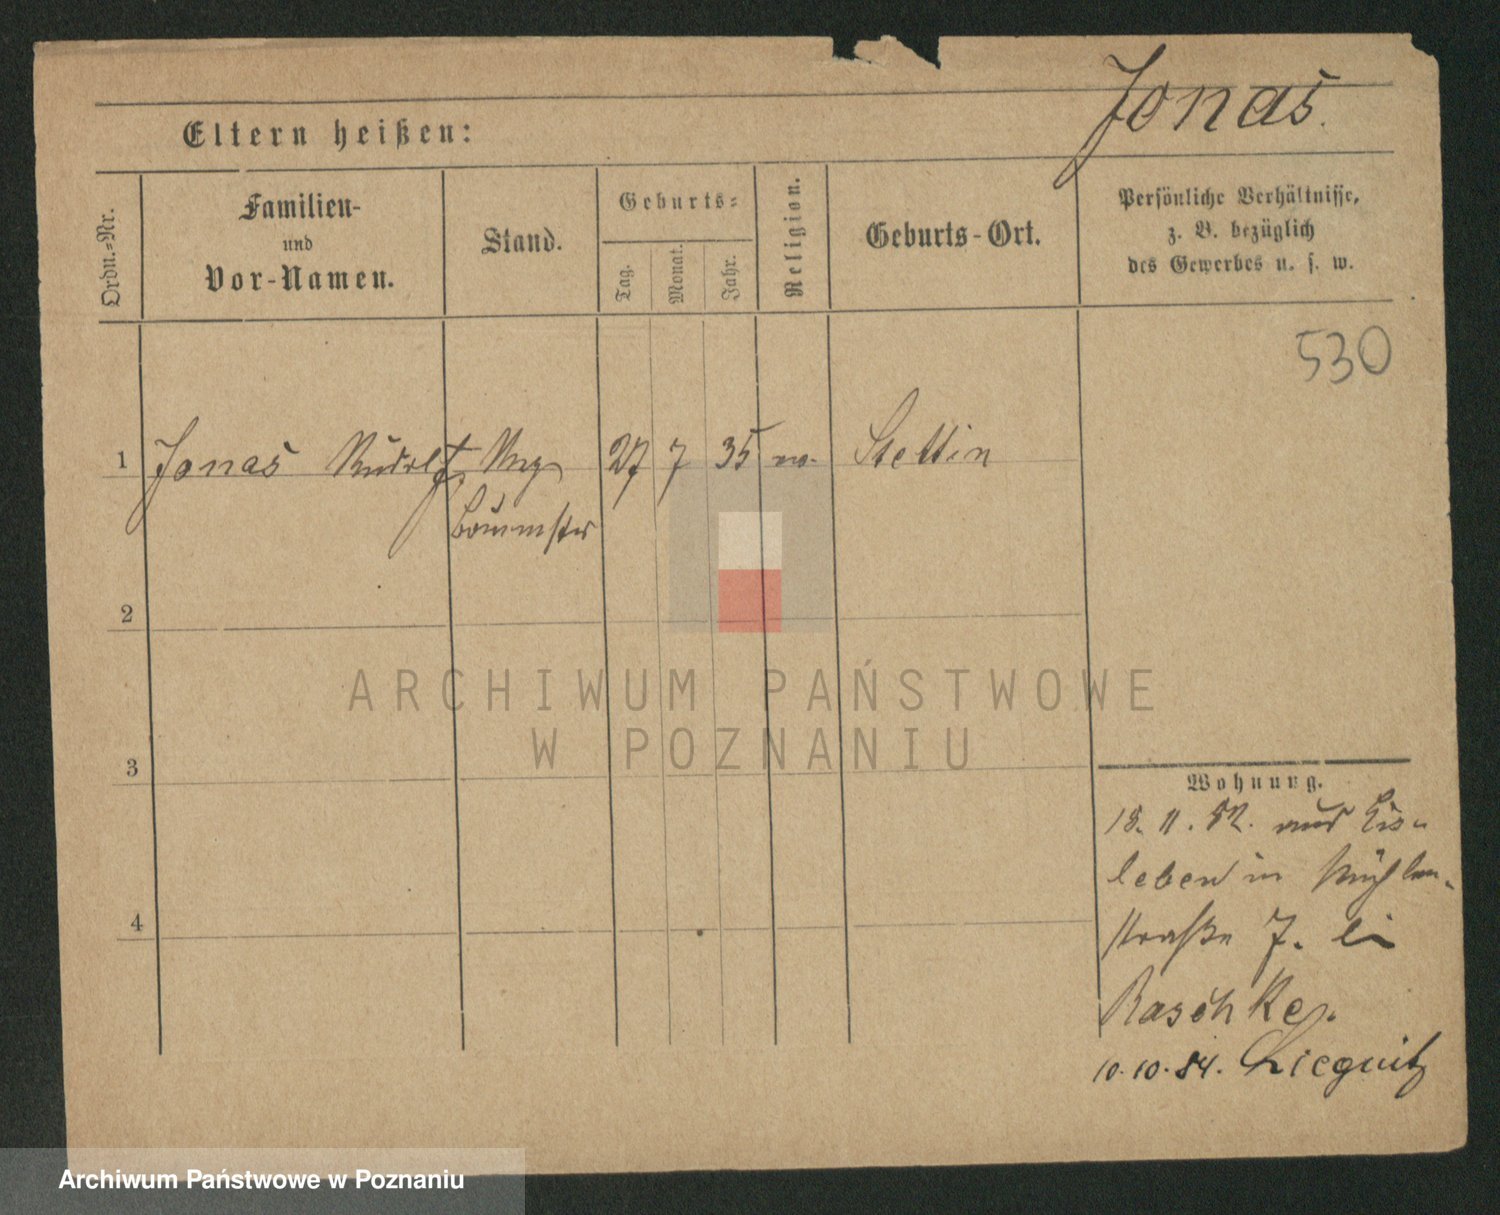 Jonas.
Eltern heißen:
Ordn.=Nr.
Familien-
und
Vor-Namen.
Stand.
Geburts=
Tag.
Monat.
Jahr.
Religion.
Geburts-Ort.
Persönliche Verhältnisse,
z. B. bezüglich
des Gewerbes u. s. w.
530
1 Jonas Rudolf, Reg 27 7 35 Stettin
Baumster
2
3
4
Wohnung.
18. 11. 82. aus Eis-
leben in Mühlen-
straße 7. bei
Raschke.
10.10.84. Liegnitz
ARCHIWUM PAŃSTWOWE
W POZNANIU
Archiwum Państwowe w Poznaniu